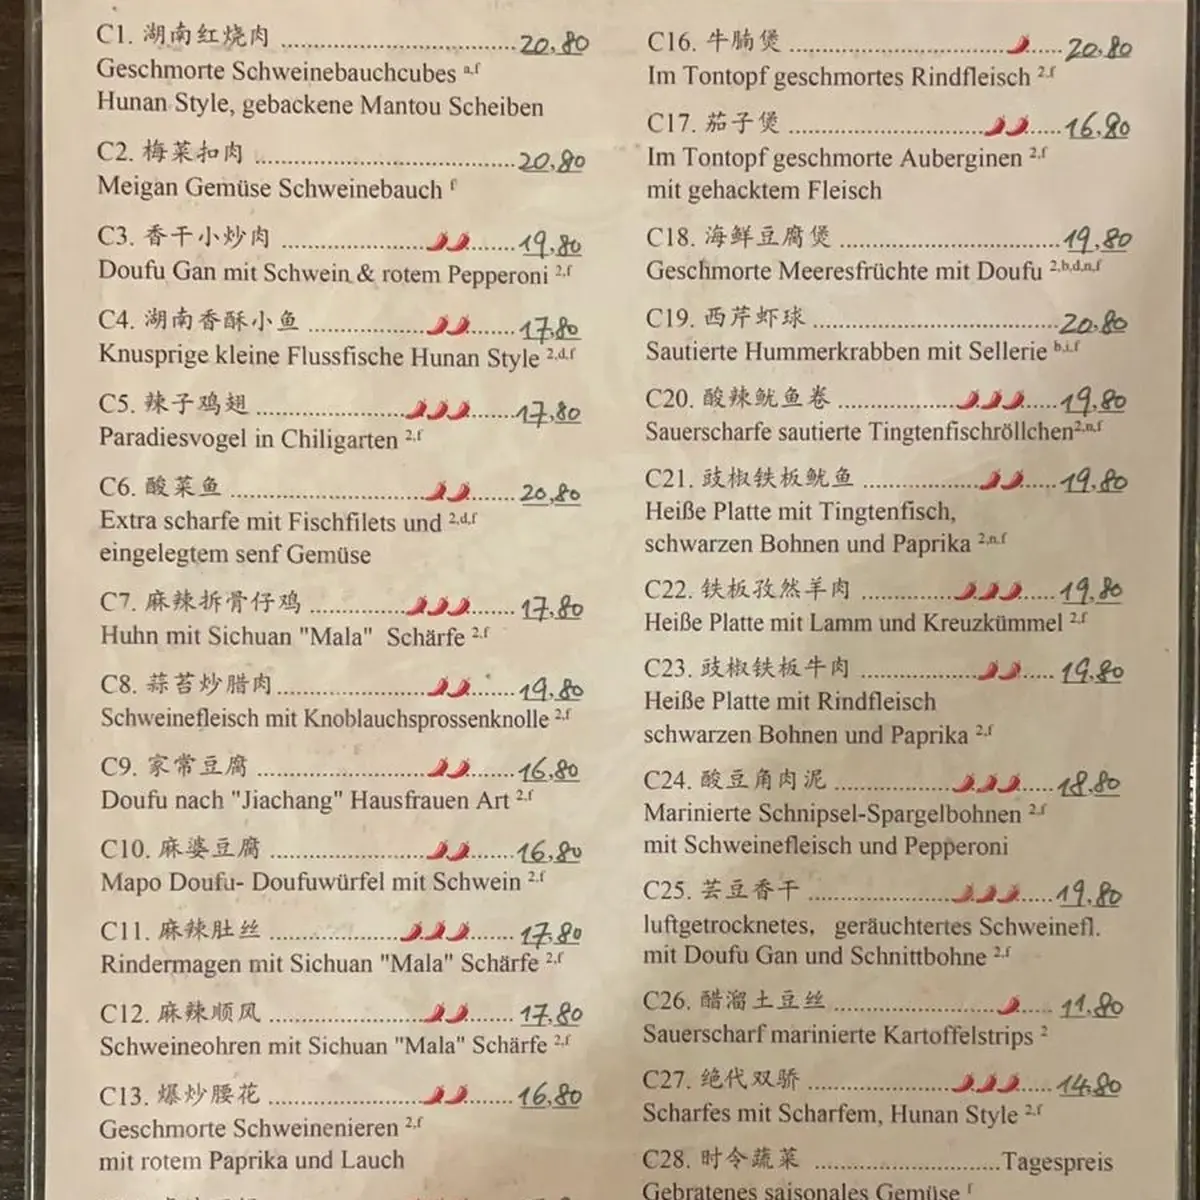 C1. 湖南红烧肉 ........ 20,80
Geschmorte Schweinebauchcubes a,f
Hunan Style, gebackene Mantou Scheiben
C2. 梅菜扣肉 ........ 20,80
Meigan Gemüse Schweinebauch f
C3. 香干小炒肉 ........ 19,80
Doufu Gan mit Schwein & rotem Pepperoni 2,f
C4. 湖南香酥小鱼 ........ 17,80
Knusprige kleine Flussfische Hunan Style 2,d,f
C5. 辣子鸡翅 ........ 17,80
Paradiesvogel in Chiligarten 2,f
C6. 酸菜鱼 ........ 20,80
Extra scharfe mit Fischfilets und 2,d,f
eingelegtem senf Gemüse
C7. 麻辣拆骨仔鸡 ........ 17,80
Huhn mit Sichuan "Mala" Schärfe 2,f
C8. 蒜苔炒腊肉 ........ 19,80
Schweinefleisch mit Knoblauchsprossenknolle 2,f
C9. 家常豆腐 ........ 16,80
Doufu nach "Jiachang" Hausfrauen Art 2,f
C10. 麻婆豆腐 ........ 16,80
Mapo Doufu- Doufuwürfel mit Schwein 2,f
C11. 麻辣肚丝 ........ 17,80
Rindermagen mit Sichuan "Mala" Schärfe 2,f
C12. 麻辣顺风 ........ 17,80
Schweineohren mit Sichuan "Mala" Schärfe 2,f
C13. 爆炒腰花 ........ 16,80
Geschmorte Schweinenieren 2,f
mit rotem Paprika und Lauch
C16. 牛腩煲 ........ 20,80
Im Tontopf geschmortes Rindfleisch 2,f
C17. 茄子煲 ........ 16,80
Im Tontopf geschmorte Auberginen 2,f
mit gehacktem Fleisch
C18. 海鲜豆腐煲 ........ 19,80
Geschmorte Meeresfrüchte mit Doufu 2,b,d,n,f
C19. 西芹虾球 ........ 20,80
Sautierte Hummerkrabben mit Sellerie b,i,f
C20. 酸辣鱿鱼卷 ........ 19,80
Sauerscharfe sautierte Tingtenfischröllchen 2,n,f
C21. 豉椒铁板鱿鱼 ........ 19,80
Heiße Platte mit Tingtenfisch,
schwarzen Bohnen und Paprika 2,n,f
C22. 铁板孜然羊肉 ........ 19,80
Heiße Platte mit Lamm und Kreuzkümmel 2,f
C23. 豉椒铁板牛肉 ........ 19,80
Heiße Platte mit Rindfleisch
schwarzen Bohnen und Paprika 2,f
C24. 酸豆角肉泥 ........ 18,80
Marinierte Schnipsel-Spargelbohnen 2,f
mit Schweinefleisch und Pepperoni
C25. 芸豆香干 ........ 19,80
luftgetrocknetes, geräuchtertes Schweinefl.
mit Doufu Gan und Schnittbohne 2,f
C26. 醋溜土豆丝 ........ 11,80
Sauerscharf marinierte Kartoffelstrips 2
C27. 绝代双骄 ........ 14,80
Scharfes mit Scharfem, Hunan Style 2,f
C28. 时令蔬菜 ........ Tagespreis
Gebratenes saisonales Gemüse f